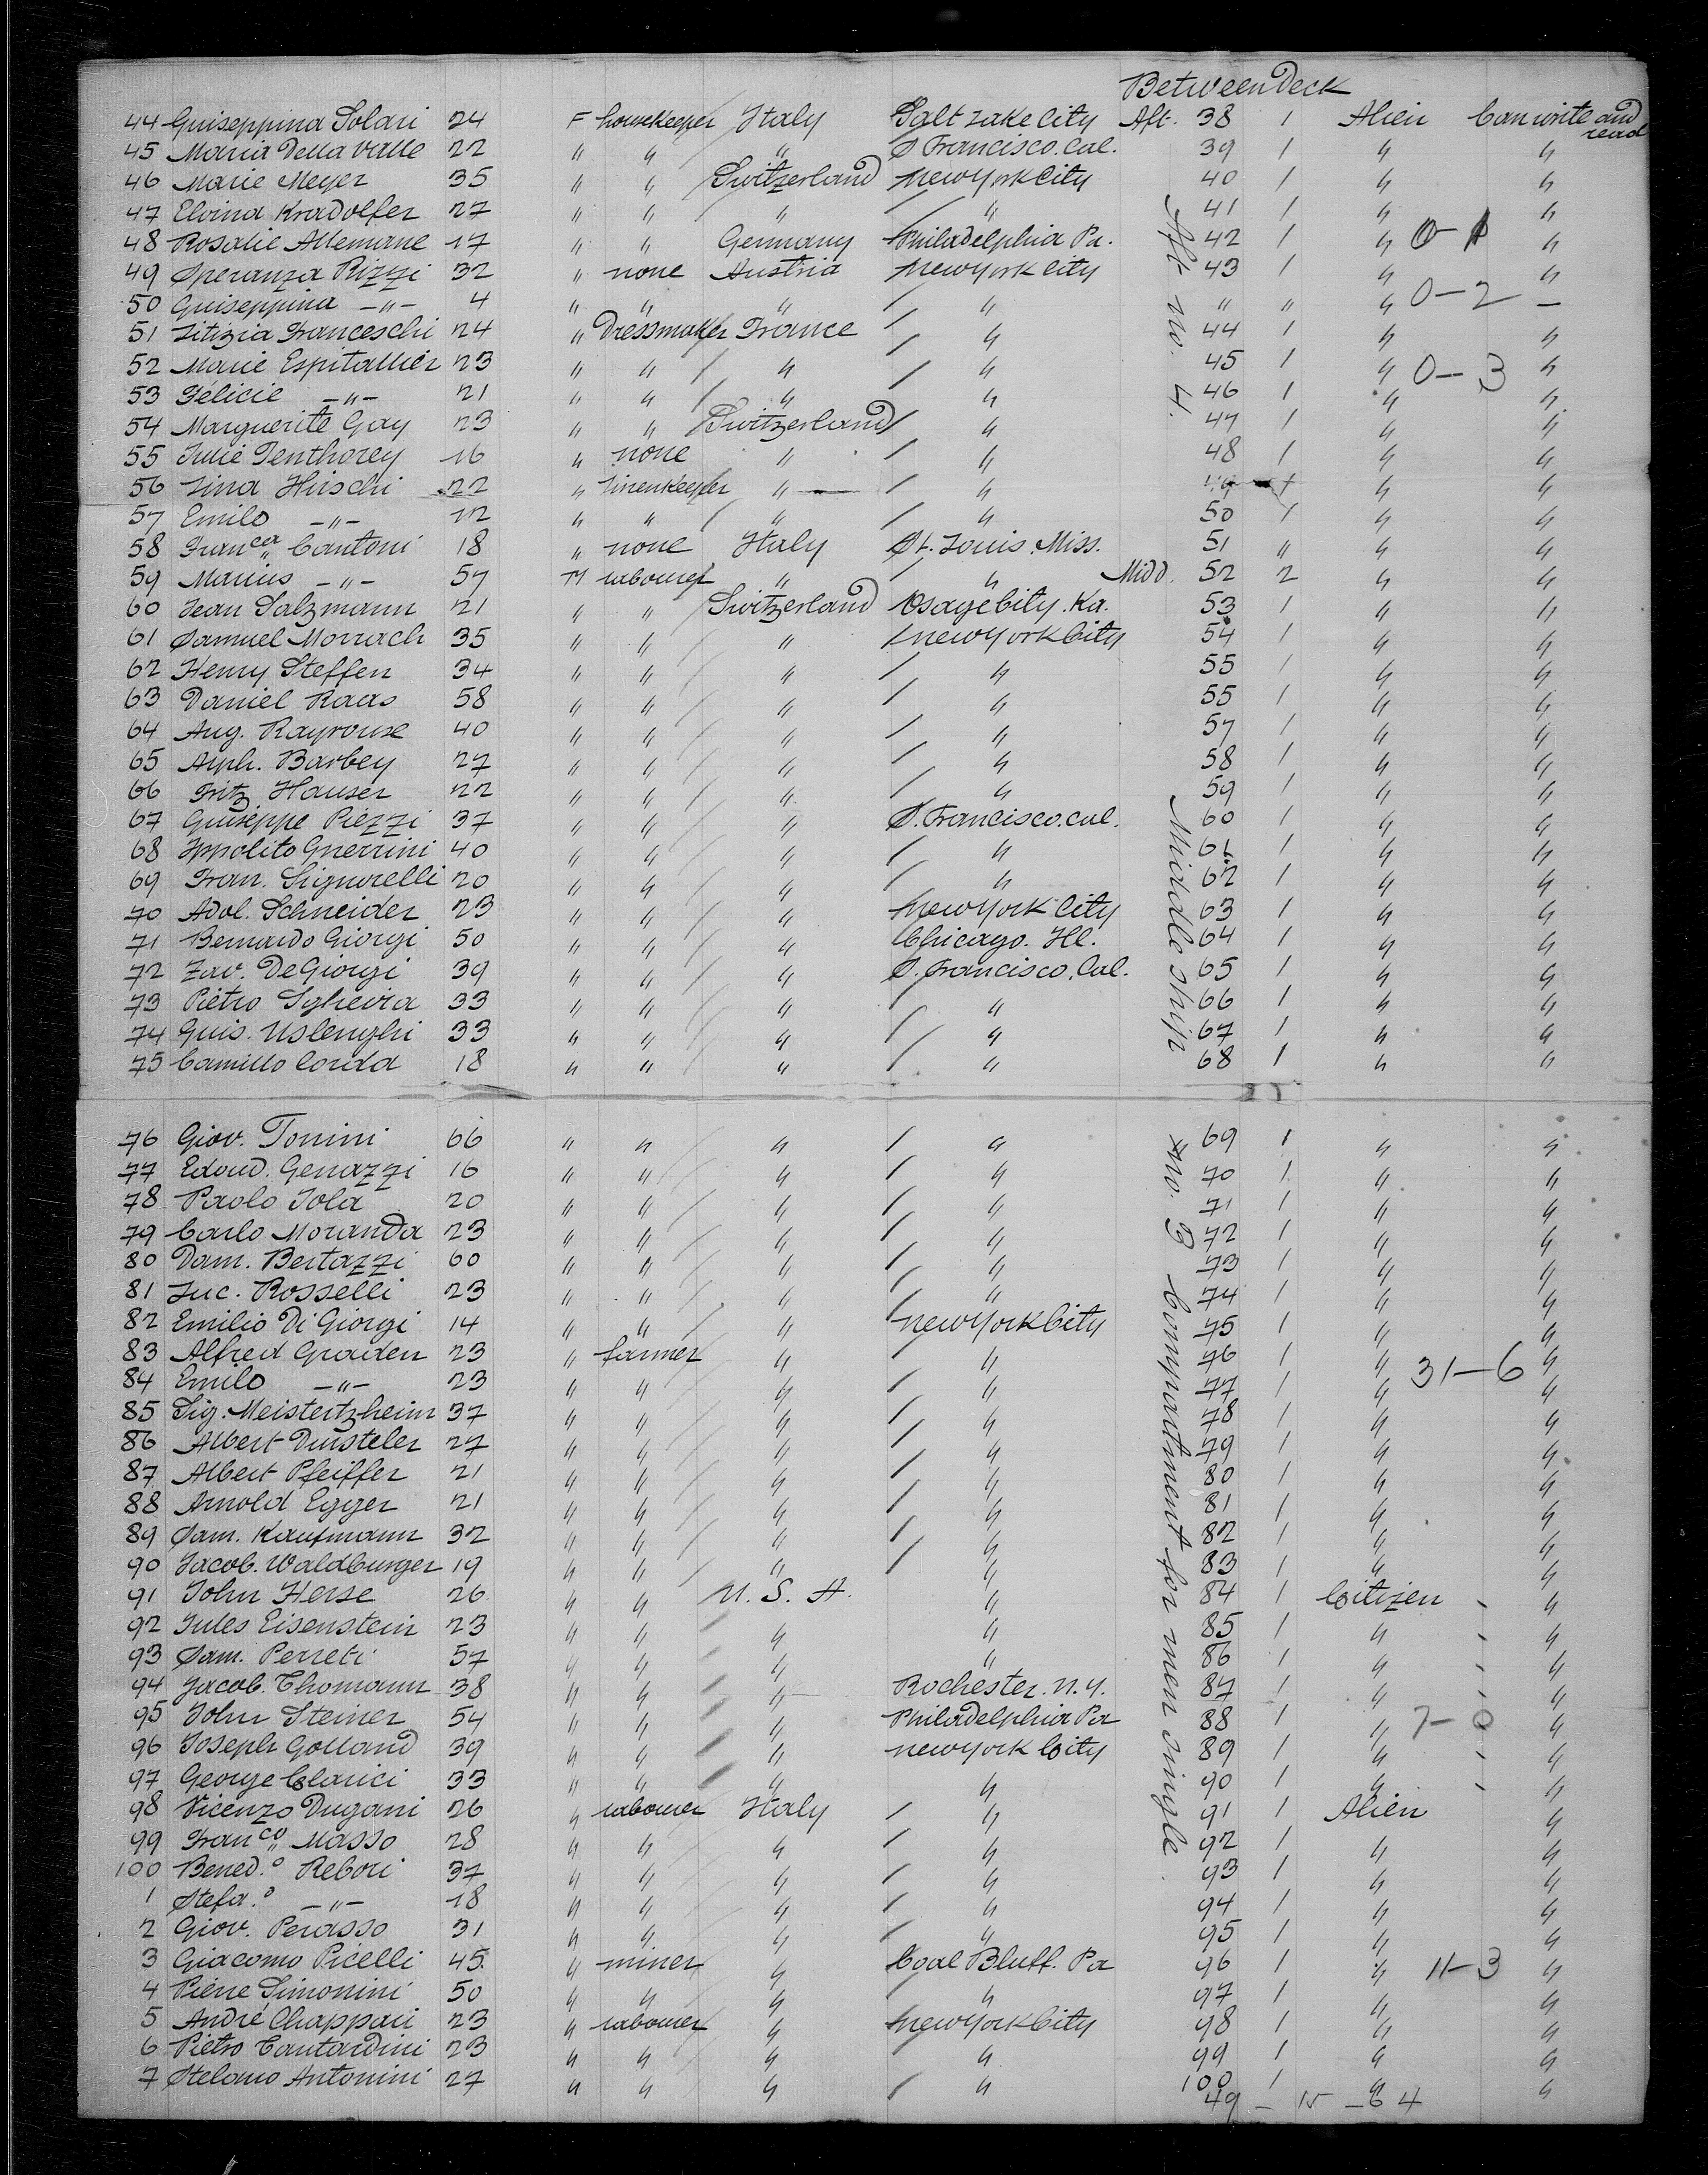 Between Deck
44 Guiseppina Solari 24 F housekeeper Italy Salt Lake City Aft. 38 1 Alien Can write and read
45 Maria Della Valle 22 " " " S. Francisco. Cal. 39 1 " "
46 Marie Meyer 35 " " Switzerland New York City 40 1 " "
47 Elvina Kradolfer 27 " " " " 41 1 " "
48 Rosalie Allemane 17 " " Germany Philadelphia Pa. 42 1 " 0-1 "
49 Speranza Rizzi 32 " none Austria New York City 43 1 " "
50 Guiseppina -"- 4 " " " " " " " 0-2 -
51 Litizia Franceschi 24 " Dressmaker France " 44 1 " "
52 Marie Espitallier 23 " " " " 45 1 " 0-3 "
53 Félicie -"- 21 " " " " 46 1 " "
54 Marguerite Gay 23 " " Switzerland " 47 1 " "
55 Julie Tenthorey 16 " none " " 48 1 " "
56 Lina Hirschi 22 " Linenkeeper " " 49 1 " "
57 Emilo -"- 12 " " " " 50 1 " "
58 Franca Cantoni 18 " none Italy St. Louis. Miss. 51 " " "
59 Marius -"- 57 M labourer " " Midd. 52 2 " "
60 Jean Salzmann 21 " " Switzerland Osage City. Ka. 53 1 " "
61 Samuel Morrach 35 " " " New York City 54 1 " "
62 Henry Steffen 34 " " " " 55 1 " "
63 Daniel Raas 58 " " " " 55 1 " "
64 Aug. Rayrouse 40 " " " " 57 1 " "
65 Alph. Barbey 27 " " " " 58 1 " "
66 Fritz Hauser 22 " " " " 59 1 " "
67 Guiseppe Piezzi 37 " " " S. Francisco. Cal. 60 1 " "
68 Ippolito Guerrini 40 " " " " 61 1 " "
69 Fran. Signorelli 20 " " " " 62 1 " "
70 Adol. Schneider 23 " " " New York City 63 1 " "
71 Bernardo Giorgi 50 " " " Chicago. Ill. 64 1 " "
72 Zav. De Giorgi 39 " " " S. Francisco, Cal. 65 1 " "
73 Pietro Sgheiza 33 " " " " 66 1 " "
74 Guis. Uslenghi 33 " " " " 67 1 " "
75 Camillo Corda 18 " " " " 68 1 " "
76 Giov. Tonini 66 " " " " 69 1 " "
77 Edoud. Genazzi 16 " " " " 70 1 " "
78 Paolo Jola 20 " " " " 71 1 " "
79 Carlo Moranda 23 " " " " 72 1 " "
80 Dam. Bertazzi 60 " " " " 73 1 " "
81 Luc. Rosselli 23 " " " " 74 1 " "
82 Emilio Di Giorgi 14 " " " New York City 75 1 " "
83 Alfred Graden 23 " farmer " " 76 1 " 31-6 "
84 Emilo -"- 23 " " " " 77 1 " "
85 Sig. Meistertzheim 37 " " " " 78 1 " "
86 Albert Dursteler 27 " " " " 79 1 " "
87 Albert Pfeiffer 21 " " " " 80 1 " "
88 Arnold Egger 21 " " " " 81 1 " "
89 Sam. Kaufmann 32 " " " " 82 1 " "
90 Jacob. Waldburger 19 " " " " 83 1 " "
91 John Herse 26 " " U. S. A. " 84 1 Citizen - "
92 Jules Eisenstein 23 " " " " 85 1 " - "
93 Sam. Perret 57 " " " " 86 1 " - "
94 Jacob. Thomann 38 " " " Rochester. N.Y. 87 1 " - "
95 John Steiner 54 " " " Philadelphia Pa 88 1 " 7-0 "
96 Joseph Golland 39 " " " New York City 89 1 " - "
97 George Clarici 33 " " " " 90 1 " - "
98 Vicenzo Dugani 26 " labourer Italy " 91 1 Alien "
99 Franco Masso 28 " " " " 92 1 " "
100 Bened.o Rebori 37 " " " " 93 1 " "
1 Stefa.o -"- 18 " " " " 94 1 " "
2 Giov. Perasso 31 " " " " 95 1 " "
3 Giacomo Picelli 45. " miner " Coal Bluff. Pa 96 1 " 11-3 "
4 Piène Simonini 50 " " " " 97 1 " "
5 André Chappari 23 " labourer " New York City 98 1 " "
6 Pietro Cantardini 23 " " " " 99 1 " "
7 Stelano Antonini 27 " " " " 100 1 " "
49 - 15 - 64
Aft no. 4.
Middle ship
no. 3 Compartment for men single.